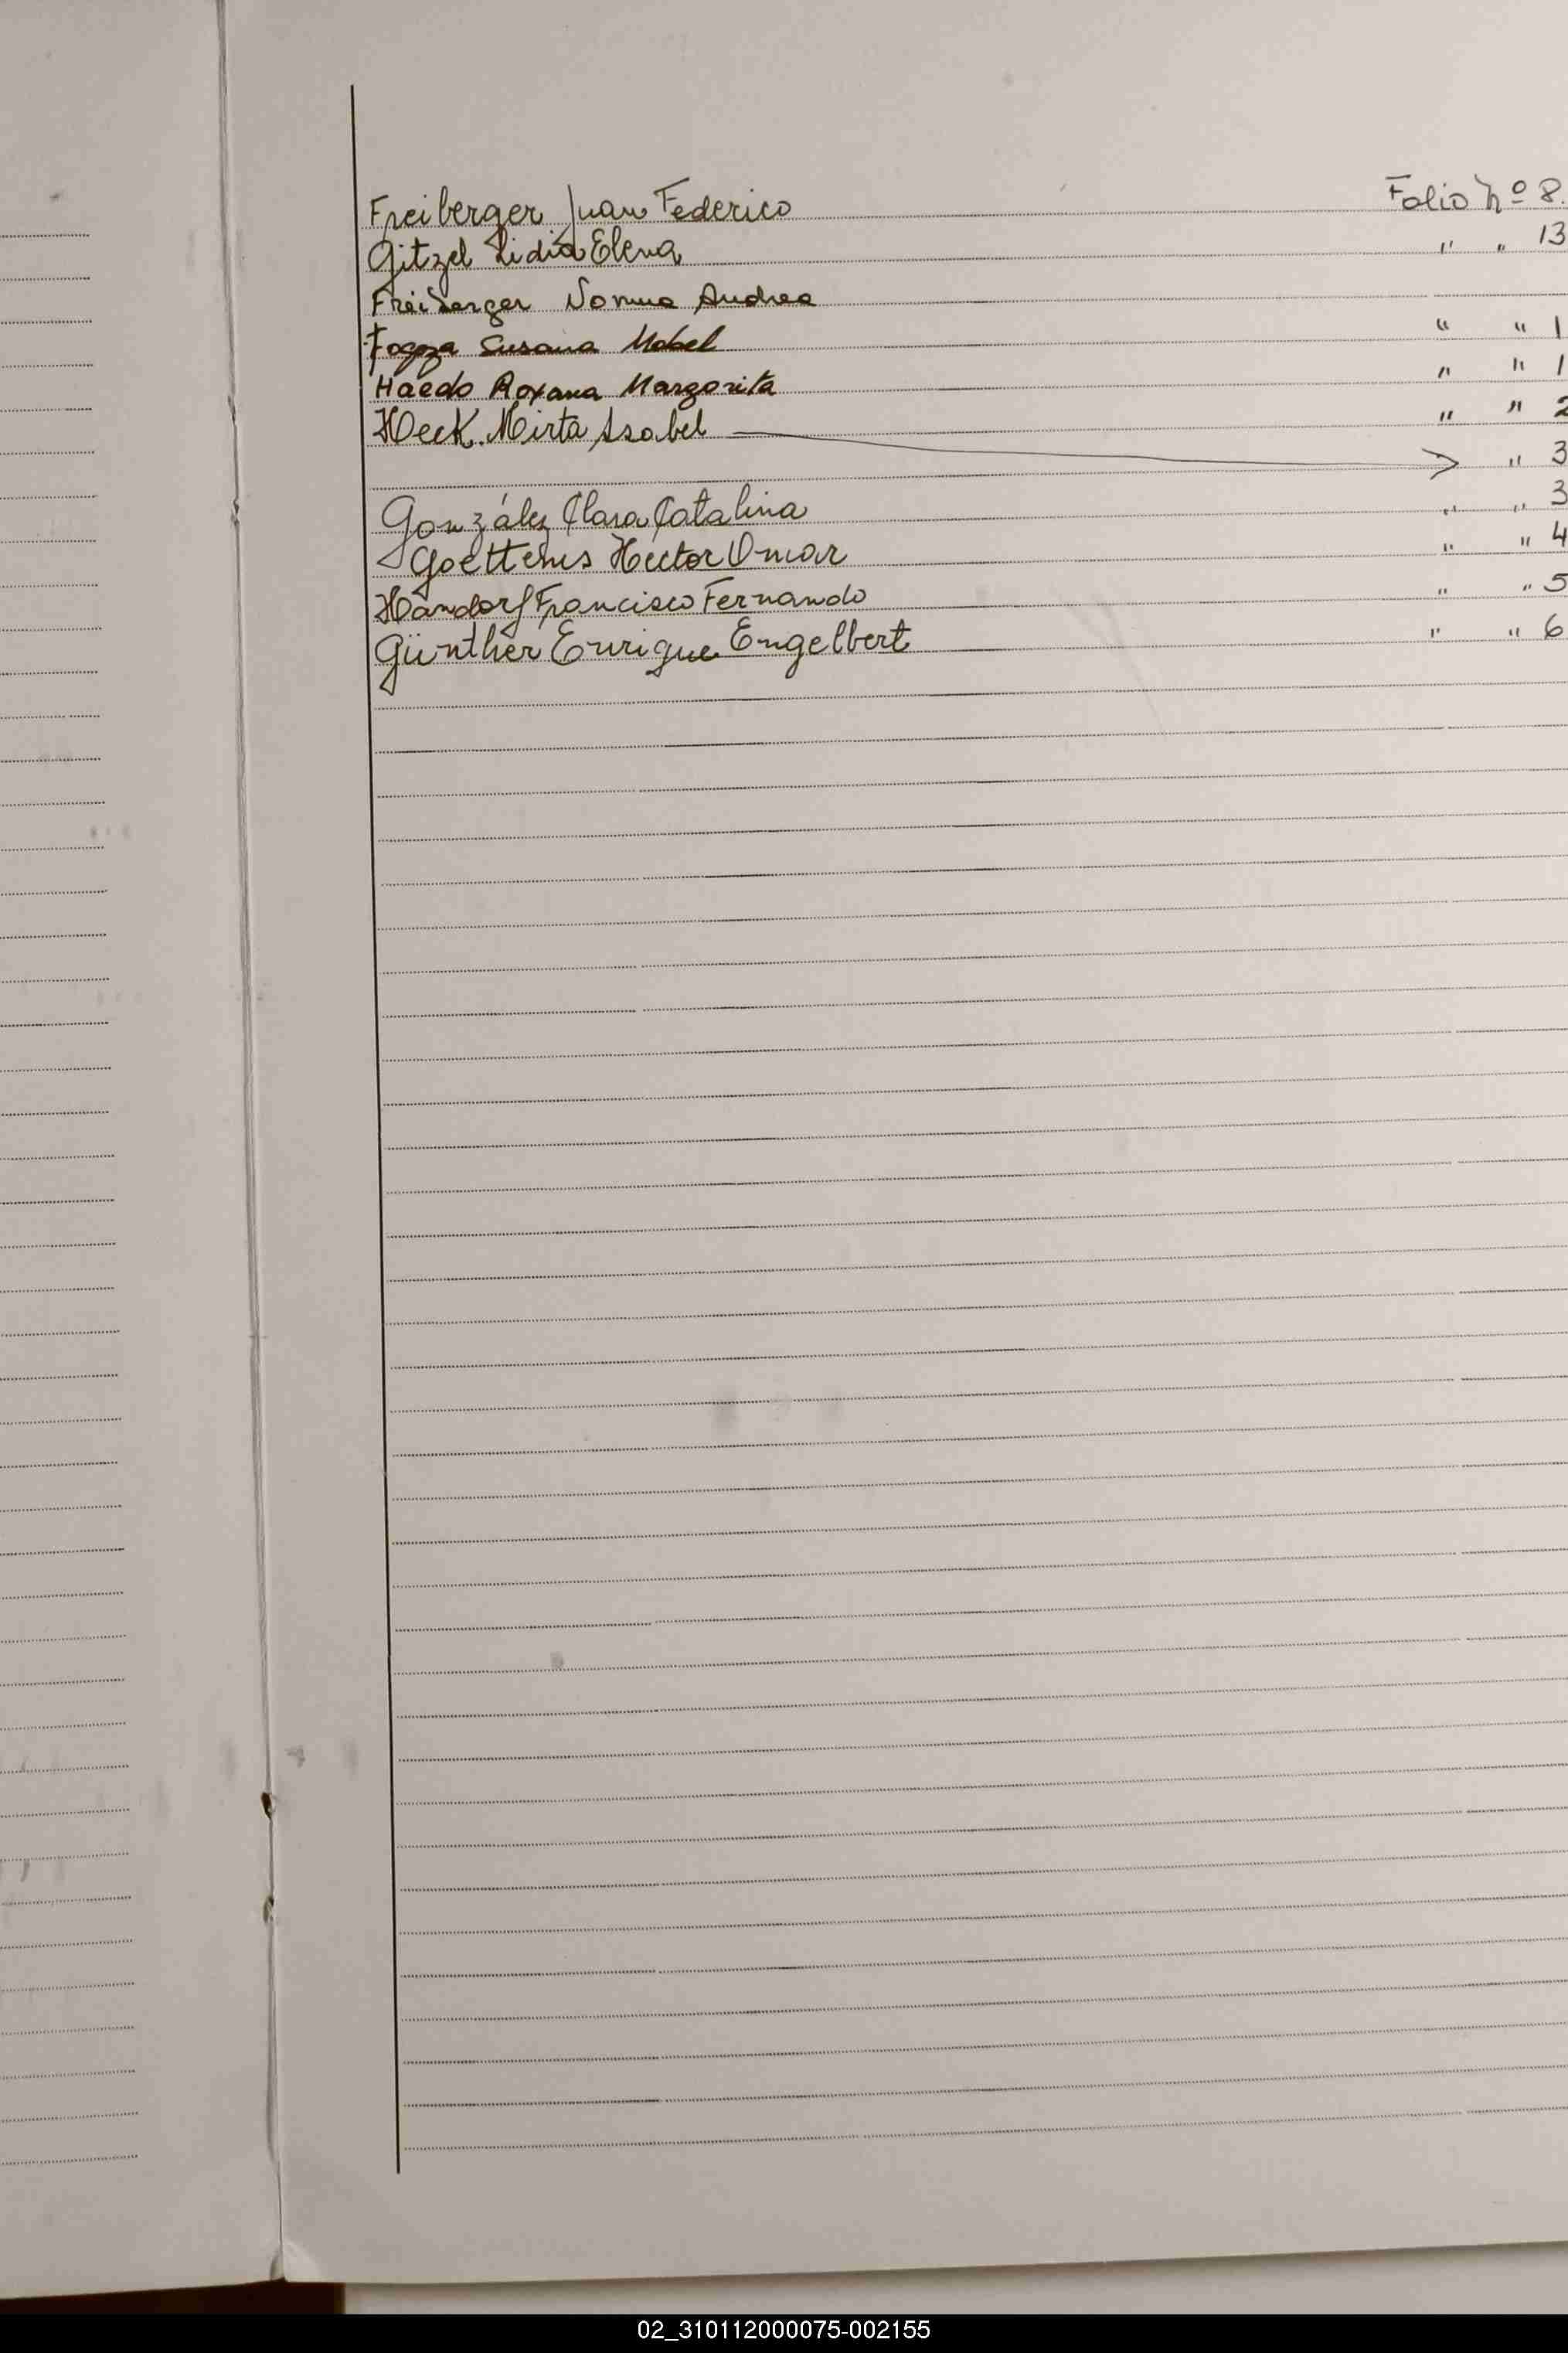 Freiberger Juan Federico Folio Nº 8.
Gitzel Lidia Elena " " 13
Freiberger Norma Andrea
Susana Mabel " " 1
Haedo Roxana Margarita " " 1
Heck Mirta Isabel " " 2
" 3
González Clara Catalina " " 3
Goettems Hector Omar " " 4
Handorf Francisco Fernando " " 5
Günther Enrique Engelbert " " 6
02_310112000075-002155